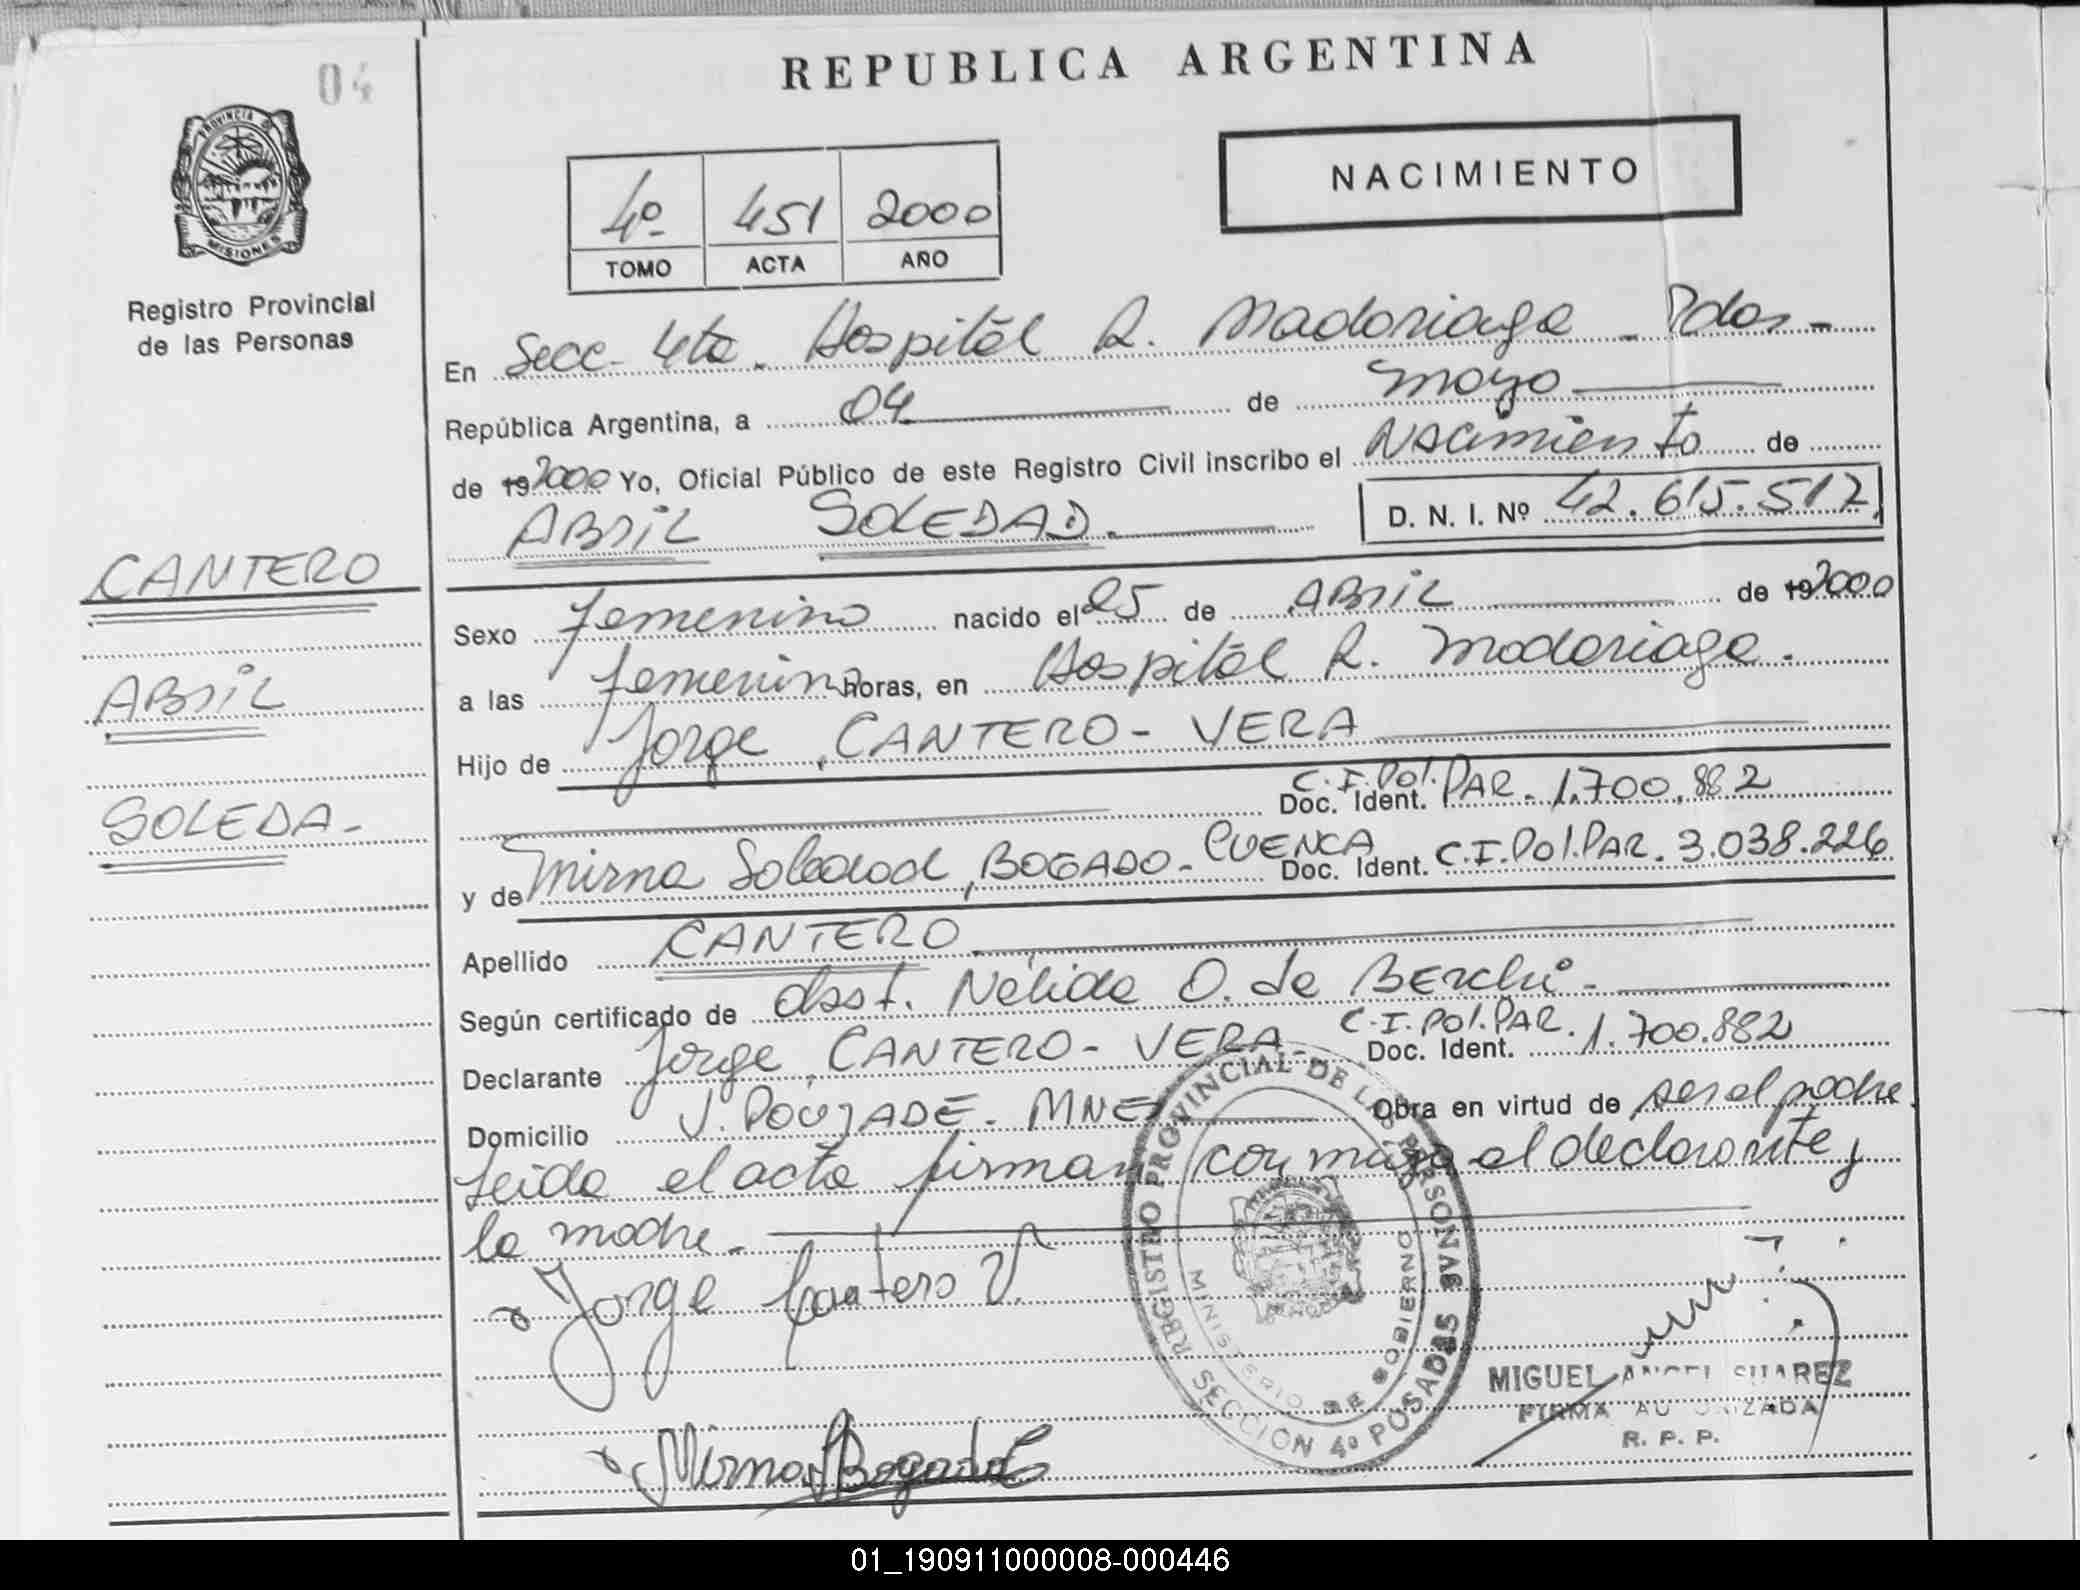 04
REPUBLICA ARGENTINA
PROVINCIA DE
MISIONES
Registro Provincial
de las Personas
4º 451 2000
TOMO ACTA AÑO
NACIMIENTO
En Secc. 4ta. Hospital R. Madariaga - Pdas -
República Argentina, a 04 de mayo
de 19 2000 Yo, Oficial Público de este Registro Civil inscribo el Nacimiento de
ABRIL SOLEDAD.
D. N. I. Nº 42.615.517
CANTERO
ABRIL
SOLEDA-
Sexo femenino nacido el 25 de ABRIL de 19 2000
a las femenino horas, en Hospital R. Madariaga.
Hijo de Jorge, CANTERO - VERA
Doc. Ident. C.I.Pol.PAR. 1.700.882
y de Mirna Soledad, BOGADO - CUENCA Doc. Ident. C.I.Pol.PAR. 3.038.226
Apellido CANTERO.
Según certificado de obst. Nélida O. de Berchi -
Declarante Jorge, CANTERO - VERA - Doc. Ident. C.I.Pol.PAR. 1.700.882
Domicilio J. POUJADE - MNES Obra en virtud de ser el padre.
Leida el acta firman conmigo el declarante y
la madre.
Jorge Cantero V.
Mirna Bogado C
REGISTRO PROVINCIAL DE LAS PERSONAS
MINISTERIO DE GOBIERNO
SECCION 4º POSADAS
MIGUEL ANGEL SUAREZ
FIRMA AUTORIZADA
R. P. P.
01_190911000008-000446